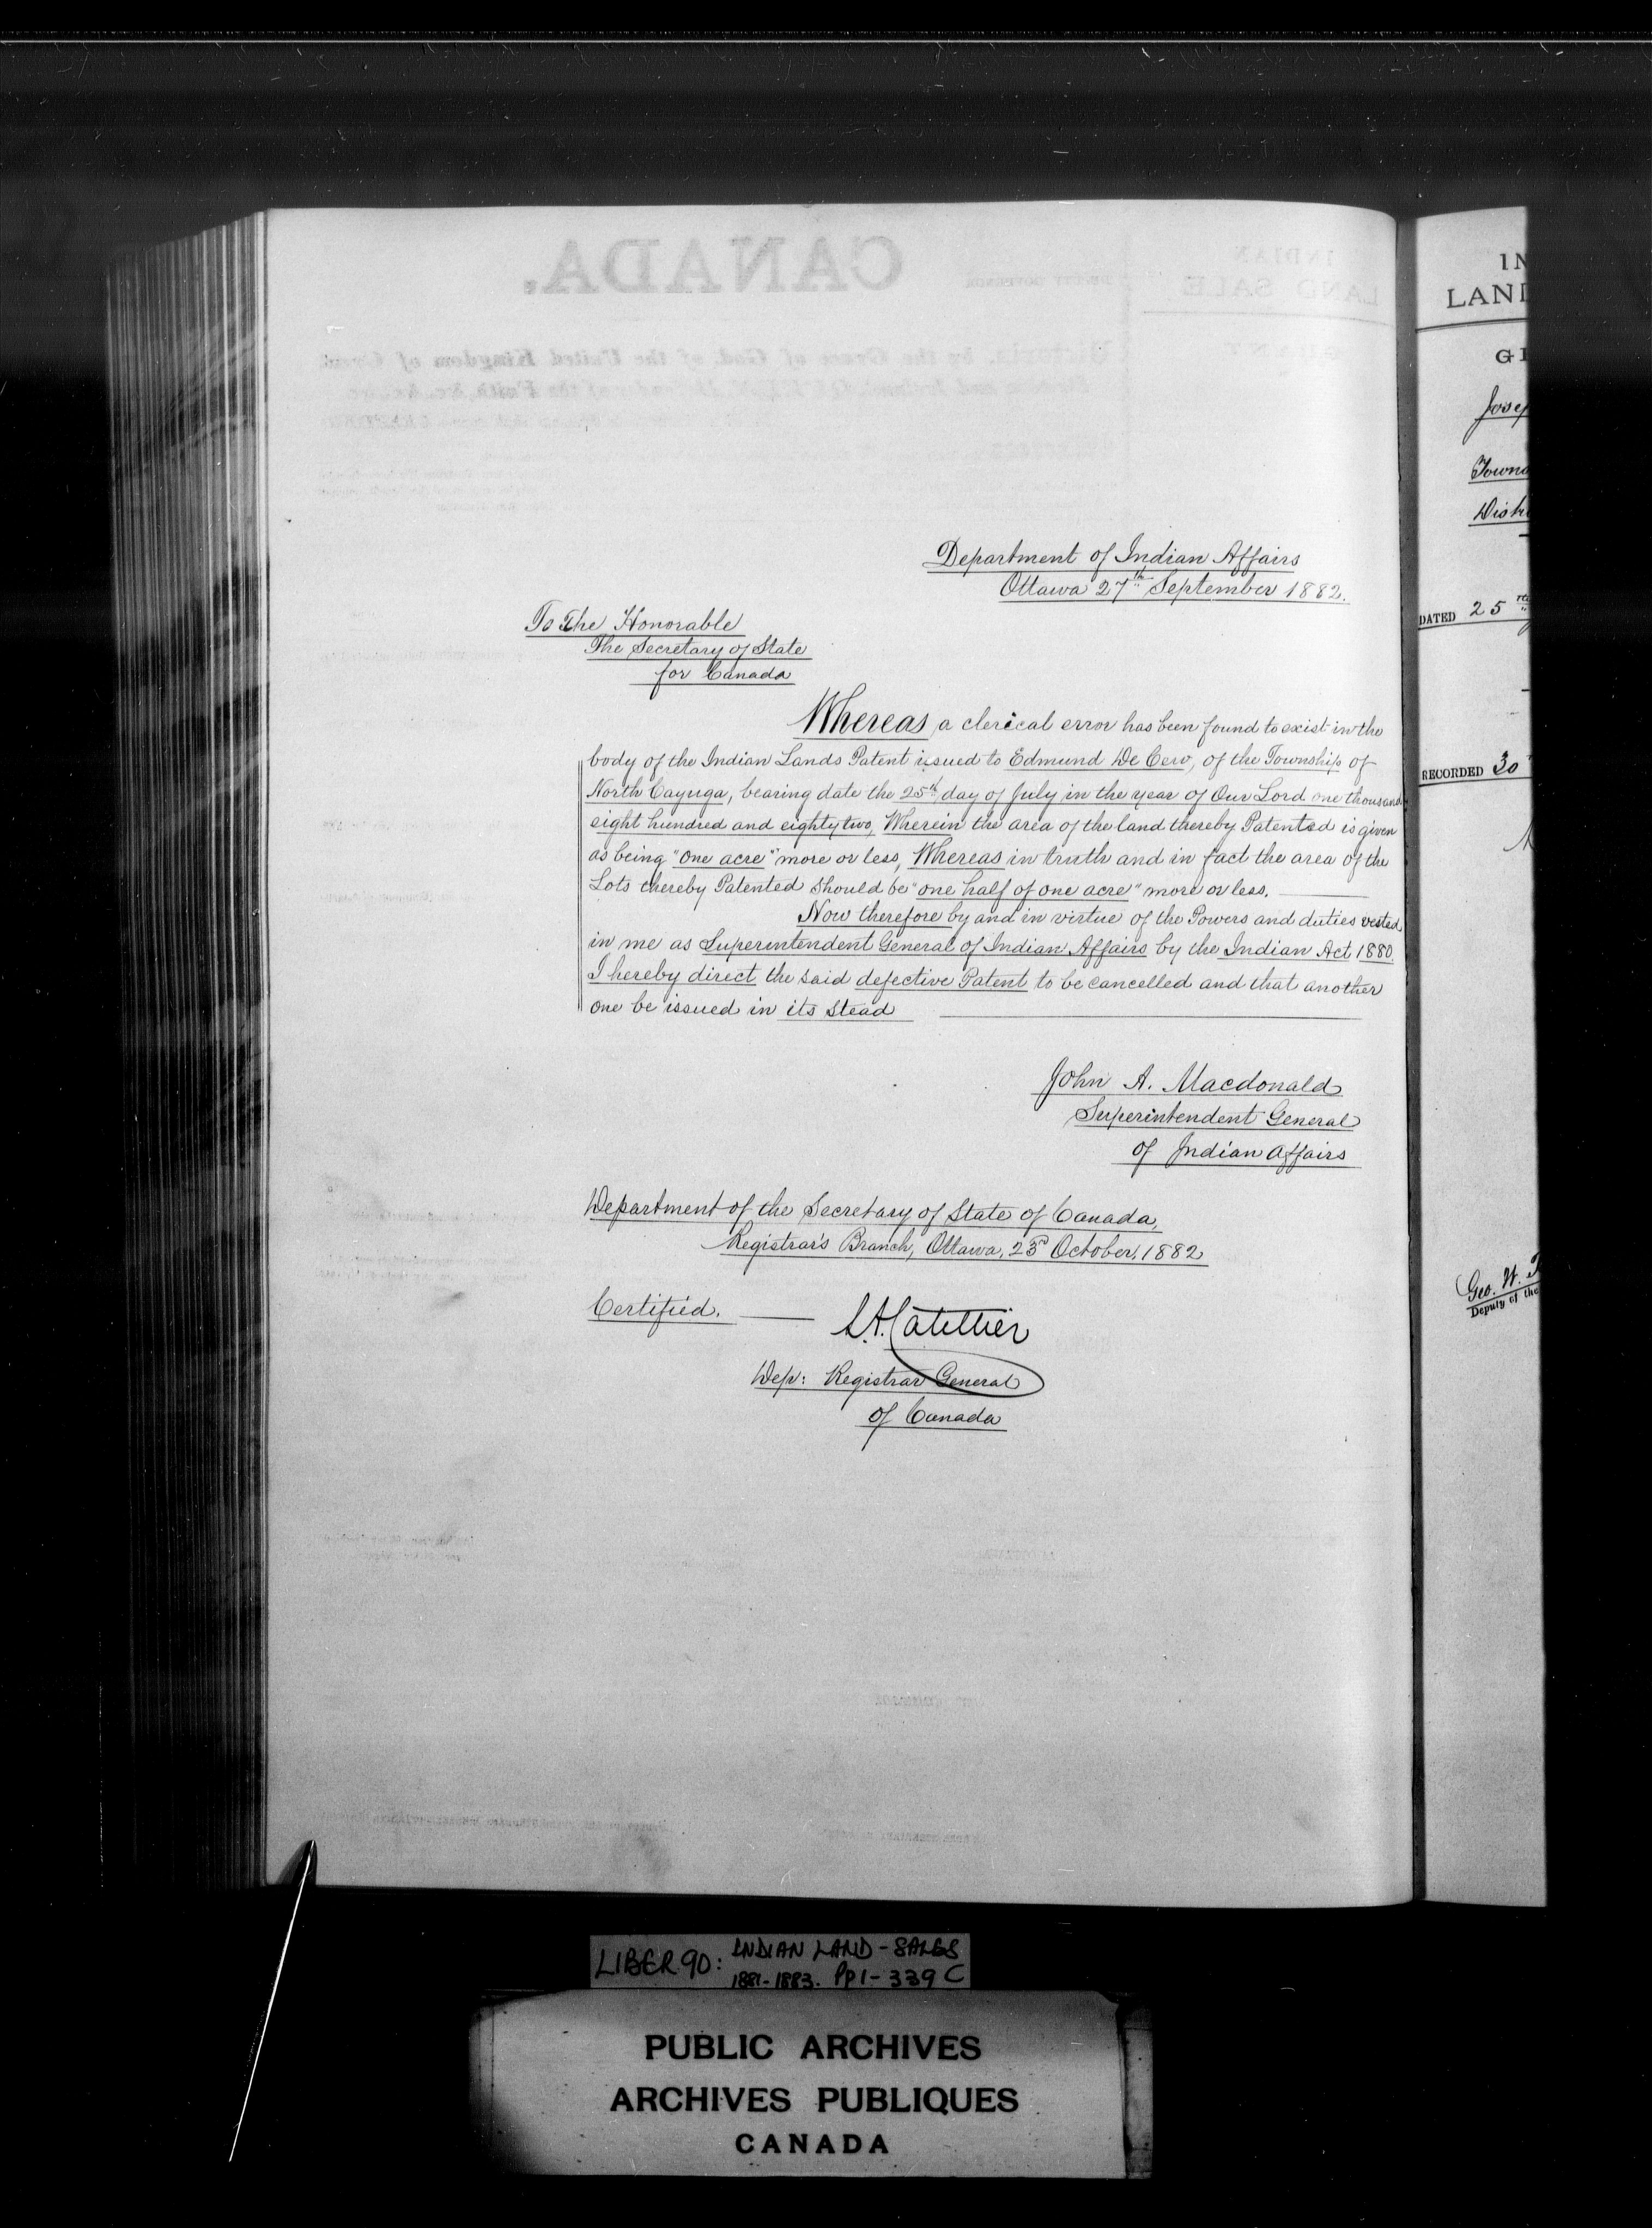 Department of Indian Affairs
Ottawa 27th September 1882.
To The Honorable
The Secretary of State
for Canada
Whereas a clerical error has been found to exist in the
body of the Indian Lands Patent issued to Edmund De Cew, of the Township of
North Cayuga, bearing date the 25th day of July in the year of Our Lord one thousand
eight hundred and eighty two, Wherein the area of the land thereby Patented is given
as being "one acre" more or less, Whereas in truth and in fact the area of the
Lots thereby Patented should be "one half of one acre" more or less.
Now therefore by and in virtue of the Powers and duties vested
in me as Superintendent General of Indian Affairs by the Indian Act 1880.
I hereby direct the said defective Patent to be cancelled and that another
one be issued in its stead
John A. Macdonald
Superintendent General
of Indian Affairs
Department of the Secretary of State of Canada,
Registrar's Branch, Ottawa, 23rd October, 1882
Certified.
L.A. Catellier
Dep: Registrar General
of Canada
IN
LAND
GR
Josep
Towns
Distr
DATED 25
RECORDED 30
Geo. W.
Deputy of the
CANADA.
INDIAN
LAND SALE
Victoria, by the Grace of God, of the United Kingdom of Great
LIBER 90: INDIAN LAND-SALES
1881-1883. Pp 1-339 C
PUBLIC ARCHIVES
ARCHIVES PUBLIQUES
CANADA